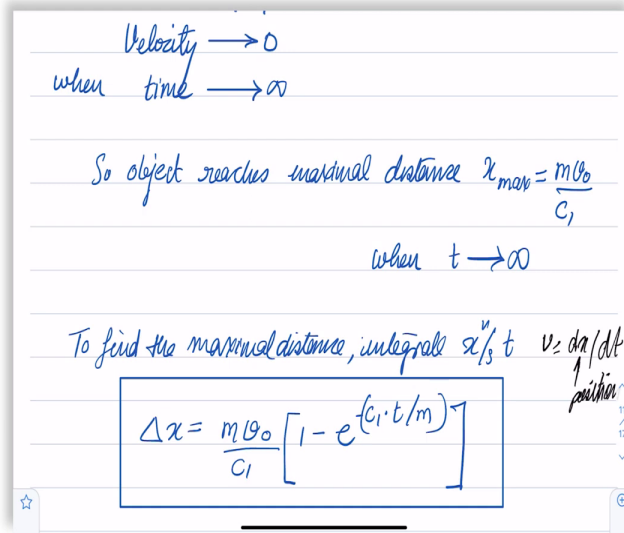 Velocity → 0
when time → ∞
So object reaches maximal distance x max = mv₀ / C₁
when t → ∞
To find the maximal distance, integrate x v/s t v = dx/dt
↑
position
Δx = mv₀ / C₁ [1 - e^(C₁·t/m)]